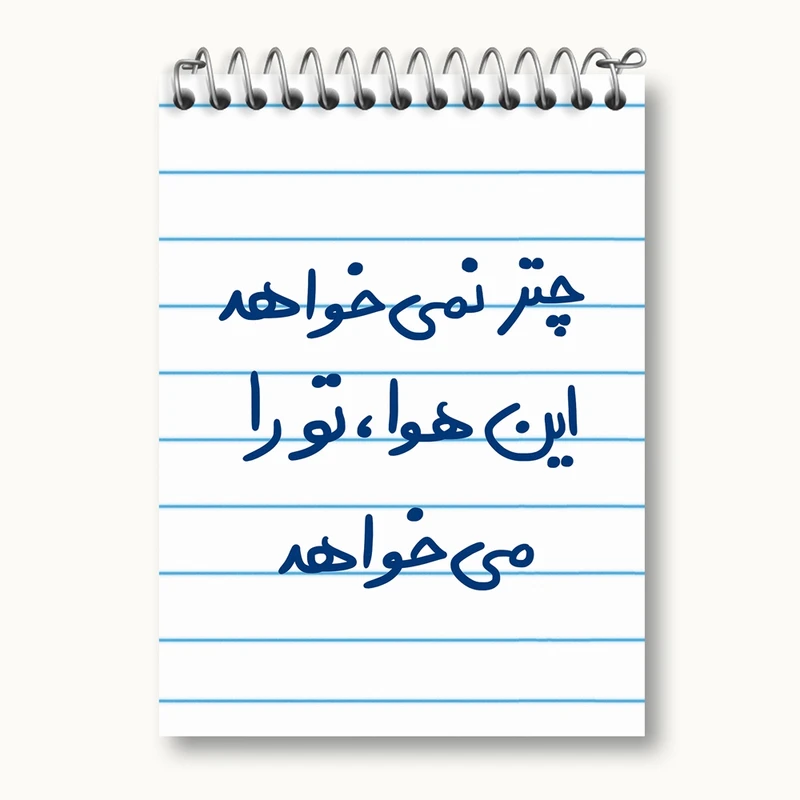 چتر نمی‌خواهد
این هوا، تو را
می‌خواهد